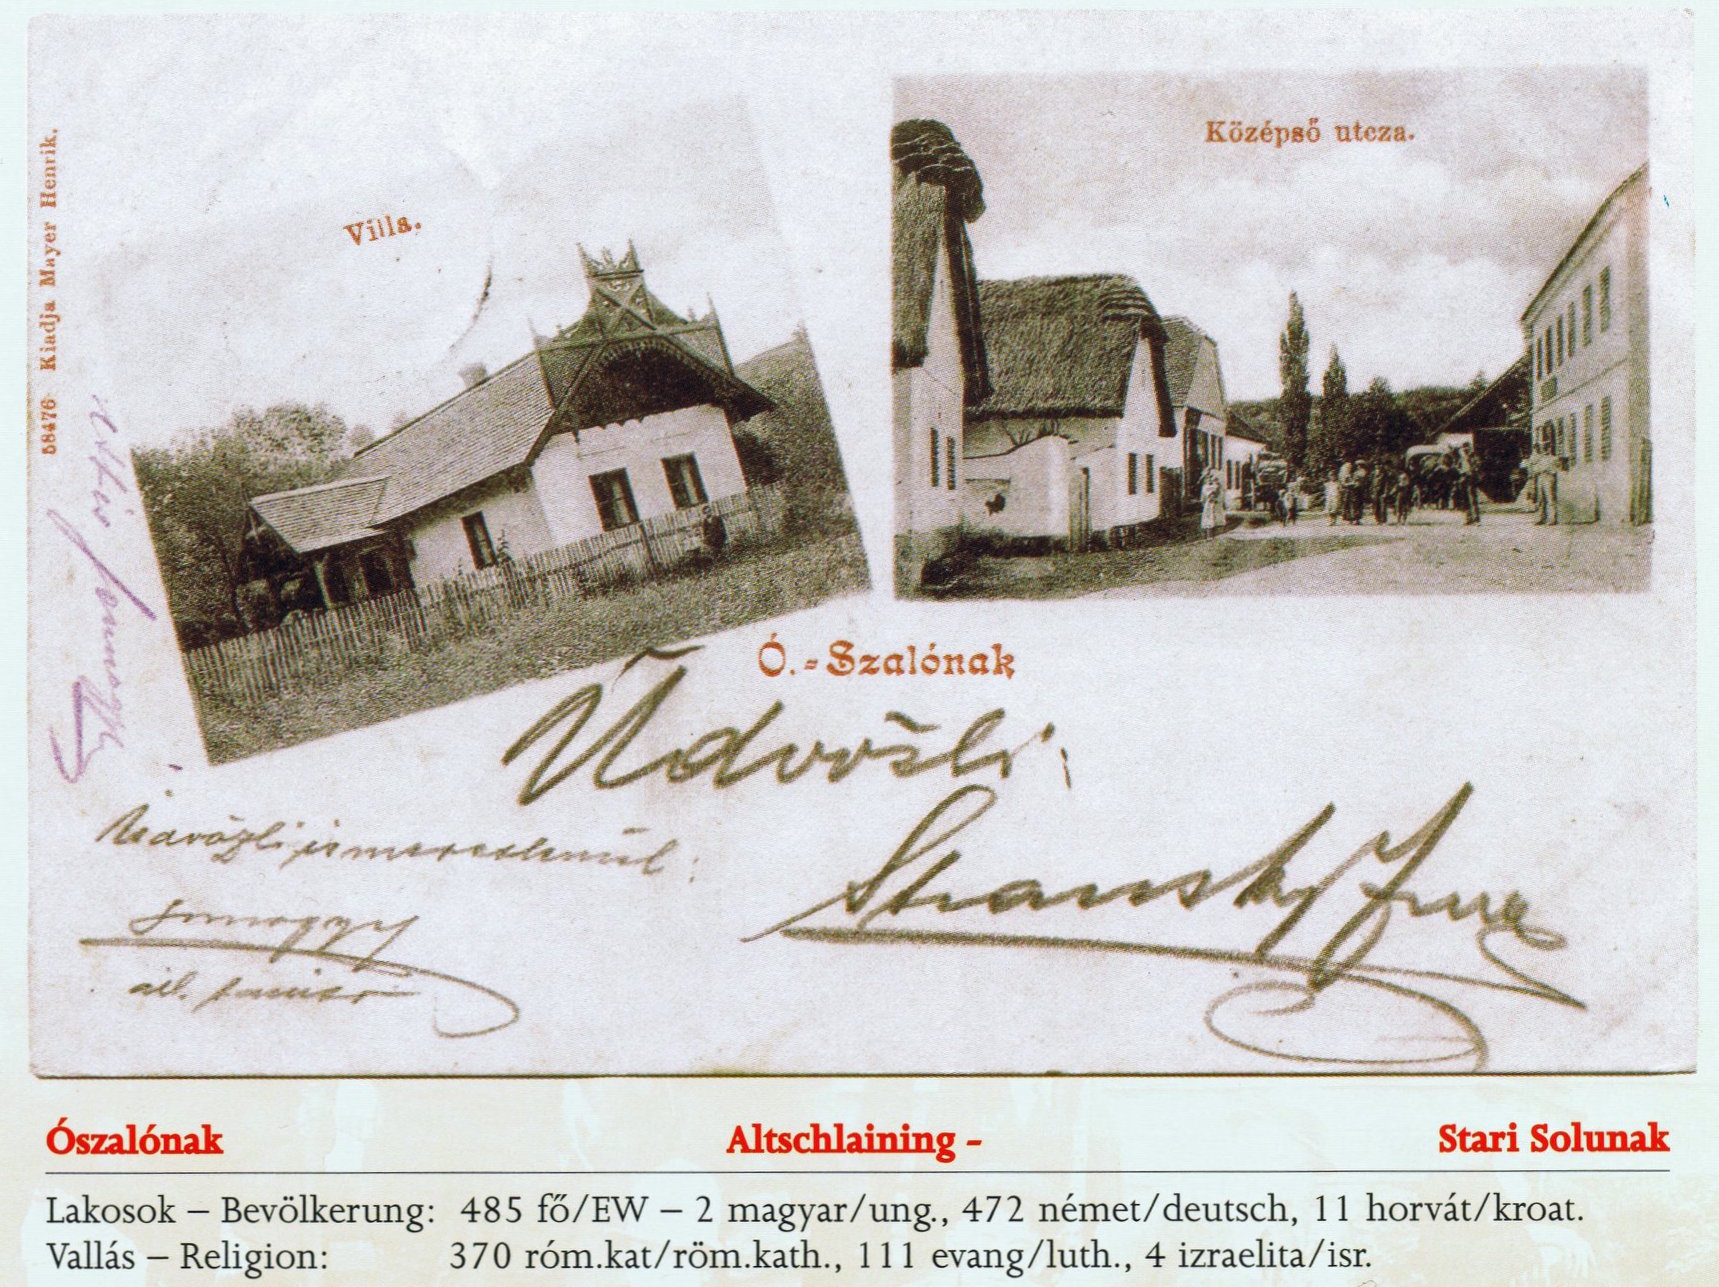 58476 Kiadja Mayer Henrik.
Villa.
Középső utcza.
Ó.-Szalónak
Üdvözli
Stransky
Üdvözli ismeretlenül:
Somogyi
áll.
Ószalónak Altschlaining – Stari Solunak
Lakosok – Bevölkerung: 485 fő/EW – 2 magyar/ung., 472 német/deutsch, 11 horvát/kroat.
Vallás – Religion: 370 róm.kat/röm.kath., 111 evang/luth., 4 izraelita/isr.